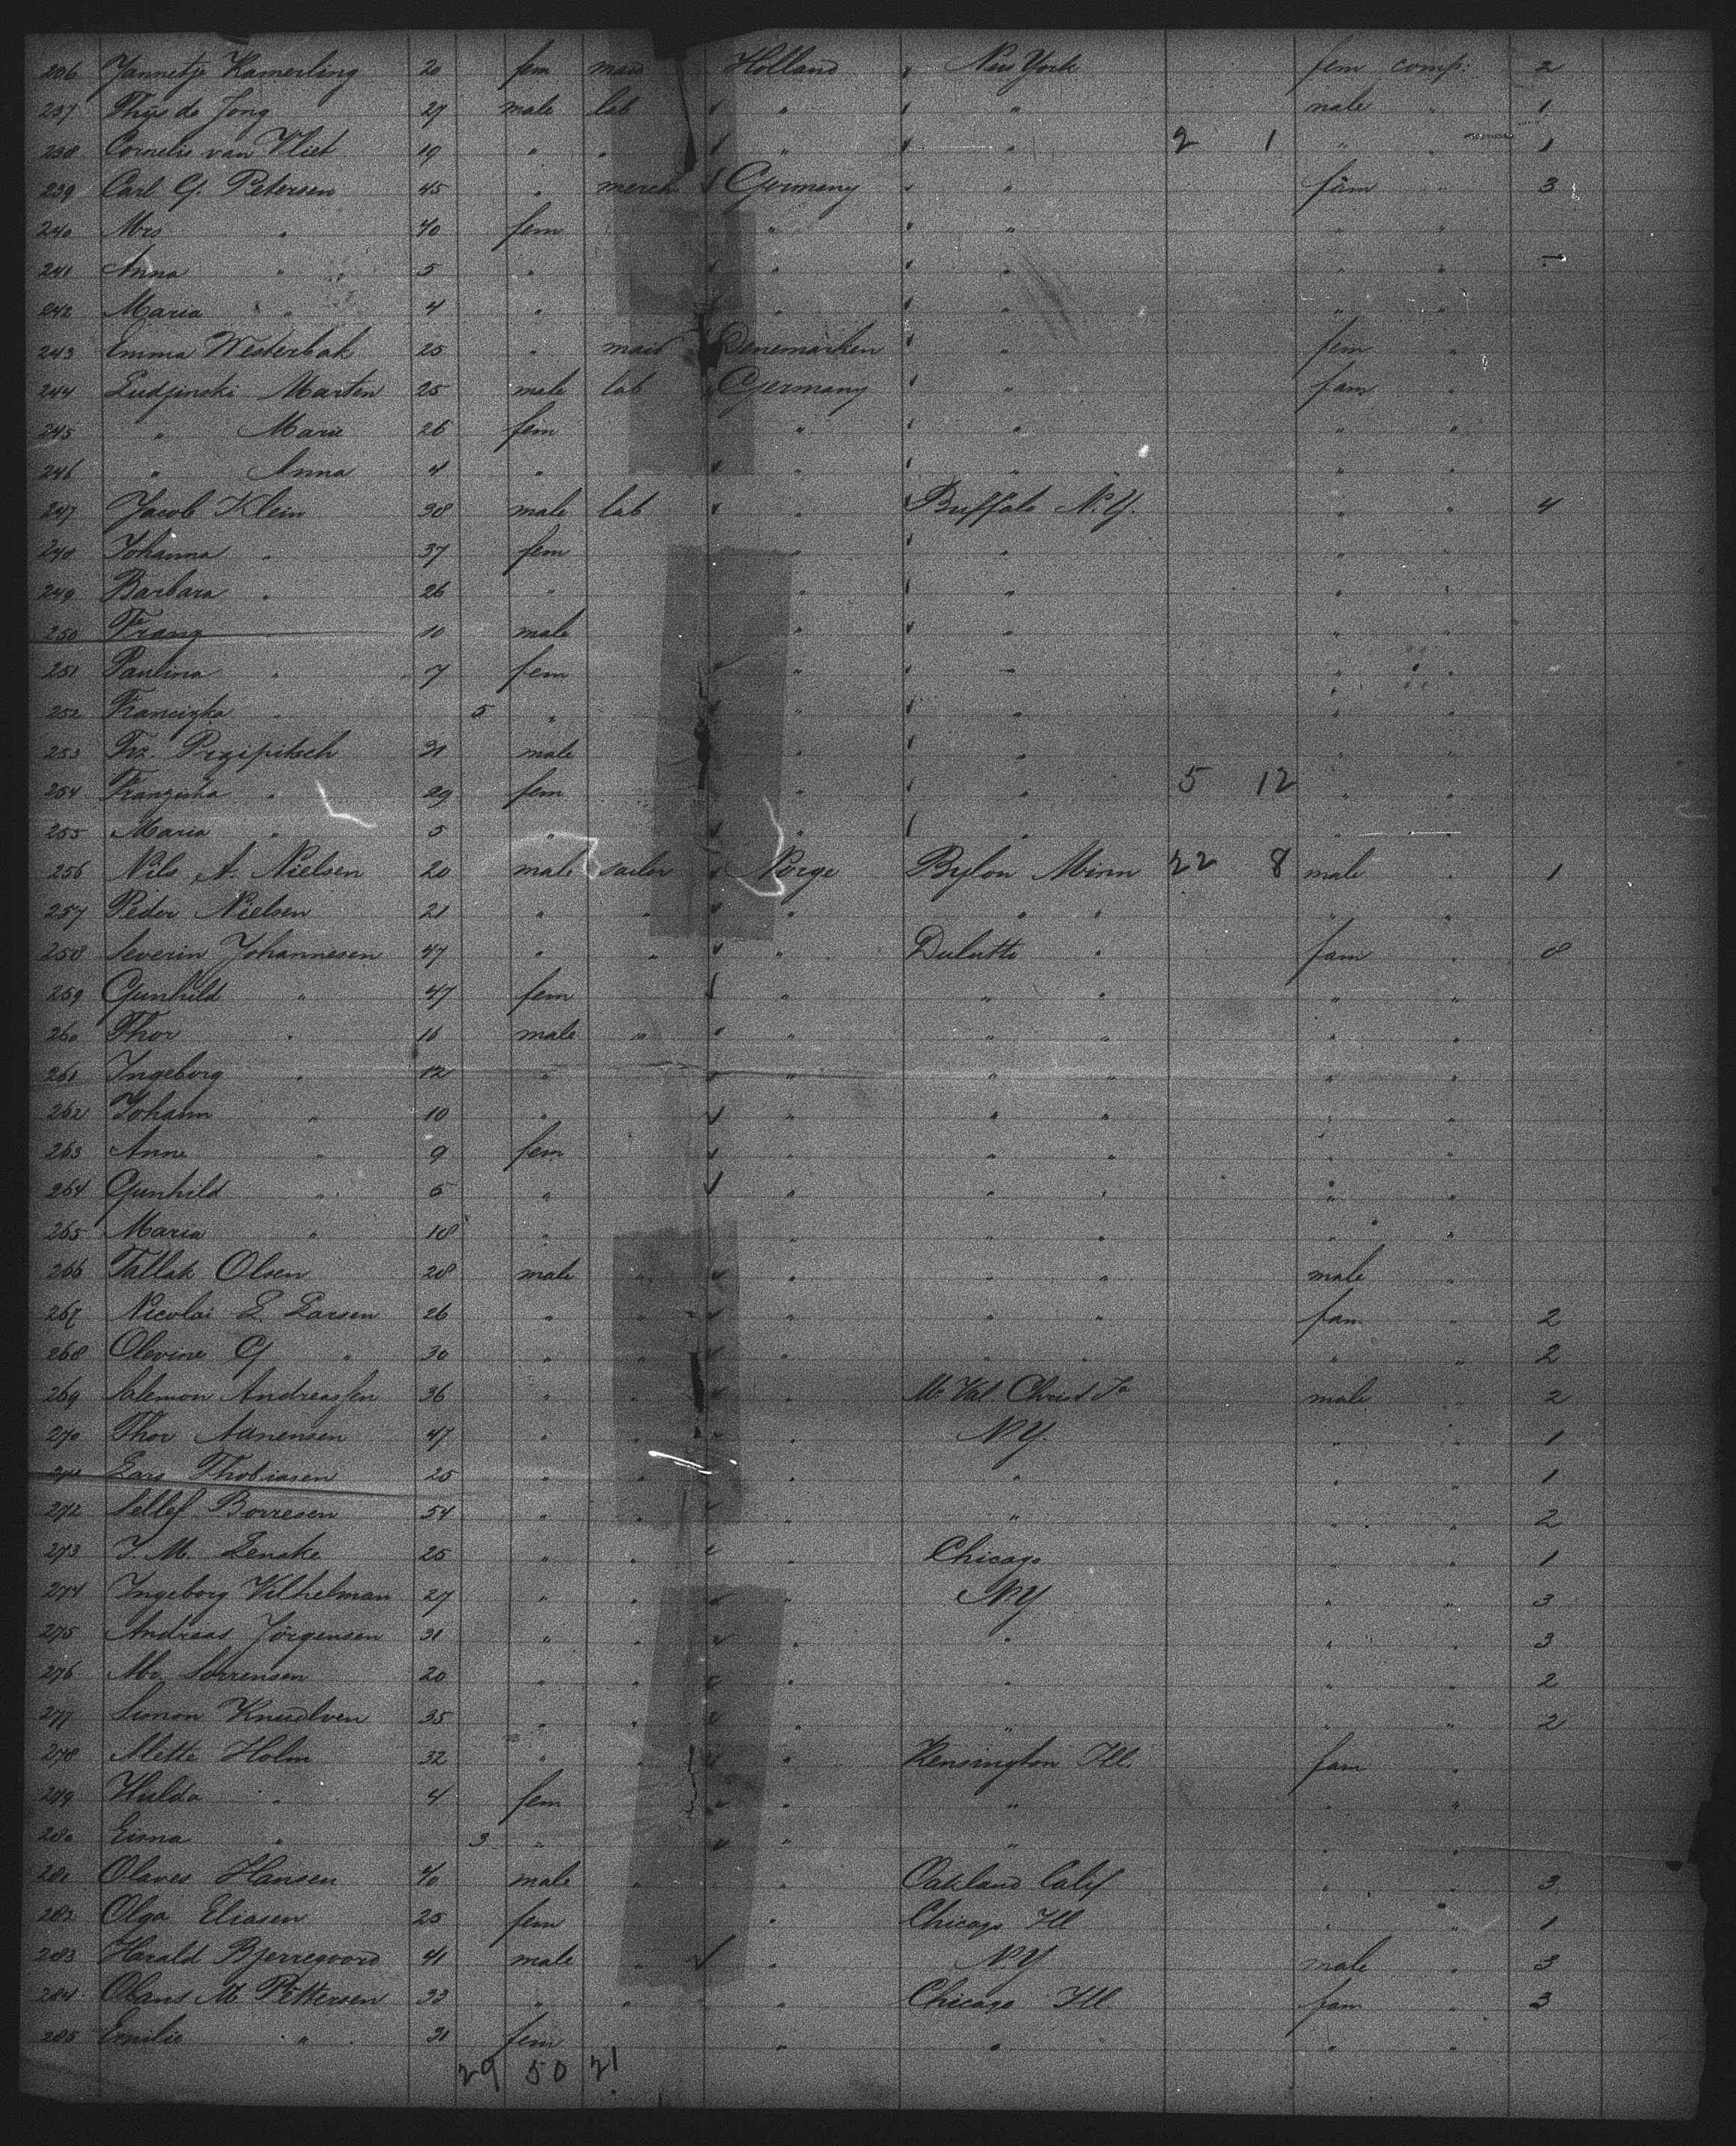 206 Jannetje Kamerling 20 fem maid Holland New York fem comp: 2
237 Thijs de Jong 27 male lab " " male " 1
238 Cornelis van Vliet 19 " " " " 2 1 " " 1
239 Carl G. Petersen 45 " merch Germany " fam " 3
240 Mrs " 40 fem " " " "
241 Anna " 5 " " " " "
242 Maria " 4 " " " " "
243 Emma Westerbak 25 " maid Denemarken " fem "
244 Ludjinski Marten 25 male lab Germany " fam "
245 " Marie 26 fem " " " "
246 " Anna 4 " " " " "
247 Jacob Klein 38 male lab " Buffalo N.Y. " " 4
248 Johanna " 37 fem " " " "
249 Barbara " 26 " " " " "
250 Franz 10 male " " " "
251 Paulina " 7 fem " " " "
252 Franziska " 5 " " " " "
253 Frz. Przipitsch 31 male " " " "
254 Franziska " 29 fem " " 5 12 " "
255 Maria " 5 " " " " "
256 Nils A. Nielsen 20 male sailor Norge Bylon Minn 22 8 male " 1
257 Peder Nielsen 21 " " " " " " "
258 Severin Johannesen 47 " " " Duluth " fam " 8
259 Gunhild " 47 fem " " " " "
260 Thor " 16 male " " " " " "
261 Ingeborg " 12 " " " " " "
262 Johann " 10 " " " " " "
263 Anne " 9 fem " " " " "
264 Gunhild " 5 " " " " " "
265 Maria " 18 " " " " " "
266 Tallak Olsen 28 male " " " " male "
267 Nicolai L. Larsen 26 " " " " " fam " 2
268 Olevine G " 30 " " " " " " " 2
269 Salemon Andreassen 36 " " " male " 2
270 Thor Aanensen 47 " " " N.Y. " " 1
271 Lars Thobiasen 25 " " " " " " 1
272 Sellef Borresen 54 " " " " " " 2
273 J. M. Lenske 25 " " " Chicago " " 1
274 Ingeborg Vilhelman 27 " " " N.Y " " 3
275 Andreas Jörgensen 31 " " " " " " 3
276 Mr. Sorrensen 20 " " " " " " 2
277 Simon Knudlven 35 " " " " " " 2
278 Mette Holm 32 " " " Kensington Ill. fam "
279 Hulda " 4 fem " " " "
280 " 3 " " " " "
281 Olaves Hansen 40 male " " Oakland Calif " " 3
282 Olga Eliasen 25 fem " Chicago Ill " " 1
283 Harald Bjerregoord 41 male " " N.Y male " 3
284 Olaus M. Pettersen 33 " " " Chicago Ill. fam " 3
285 Emilie " 31 fem " " " "
29 50 21